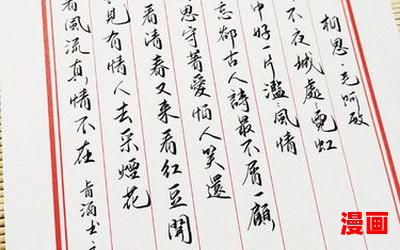 相思·毛阿敏
不夜城處〻霓虹
中好一片濫〻風情
忘却古人詩最不屑一顧
思守著愛怕人笑還
看清春又來看紅豆開
見有情人去采煙花
着風流真情不在
漫画